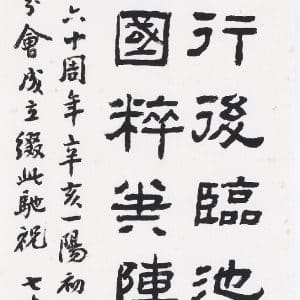 行後臨池
國粹兼陳
六十周年辛亥一陽初
分會成立綴此馳祝 七